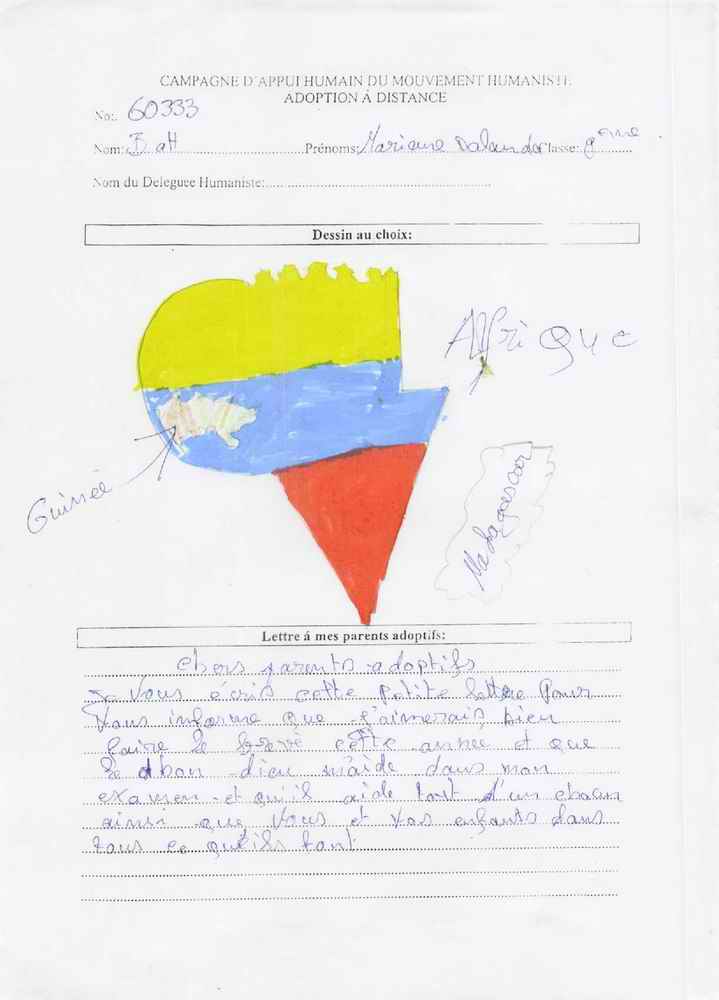 CAMPAGNE D'APPUI HUMAIN DU MOUVEMENT HUMANISTE
ADOPTION Á DISTANCE
No:. 60333
Nom: Bah Prénoms: Mariame Dalanda Classe: 9ème
Nom du Deleguee Humaniste:
Dessin au choix:
Afrique
Guinée
Madagascar
Lettre á mes parents adoptifs:
Chers parents adoptifs
Je Vous écris cette Petite lettre Pour
Vous informe que j'aimerais bien
faire le brevè cette année et que
le bon dieu m'aide dans mon
examen et qu'il aide tout d'un chacun
ainsi que Vous et Vos enfants dans
tous ce qu'ils font